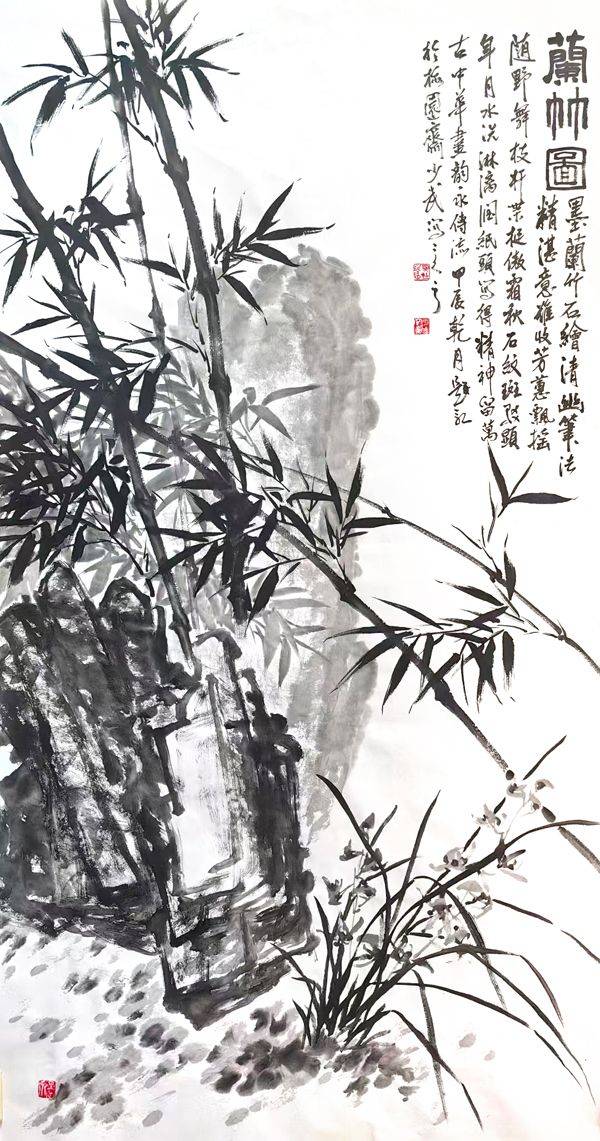 蘭竹圖
墨蘭竹石繪清幽筆法
精湛意雄收芳蕙飄摇
随野舞枝杆葉挺傲霜秋石紋斑駁顕
年月水洗淋漓润紙頭寫得精神留萬
古中華畫韵永傳流甲辰乾月題記
於園齋少武寫之